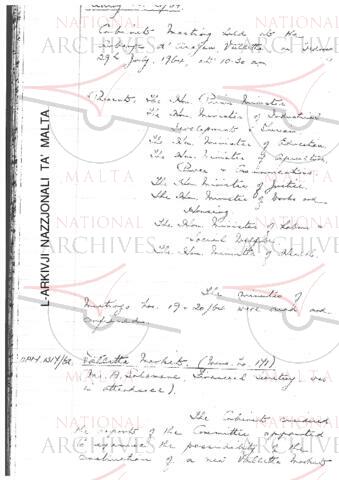 Cabinet Meeting held at the
Auberge d'Aragon, Valletta, on
29th July, 1964, at 10.30 am
Present: The Hon. Prime Minister
The Hon. Minister of Industrial
Development & Tourism
The Hon. Minister of Education
The Hon. Minister of Agriculture,
Power & Communications
The Hon. Minister of Justice
The Hon. Minister of Works and
Housing
The Hon. Minister of Labour &
Social Welfare
The Hon. Minister of Health.
The minutes of
Meetings Nos. 19-20/64 were read and
confirmed.
Valletta Market. (Memo. No. 174)
(Mr. A. Financial Secretary was
in attendance).
The Cabinet considered
the reports of the Committee appointed
to examine the possibility of the
construction of a new Valletta Market
L-ARKIVJI NAZZJONALI TA' MALTA.
NATIONAL ARCHIVES MALTA